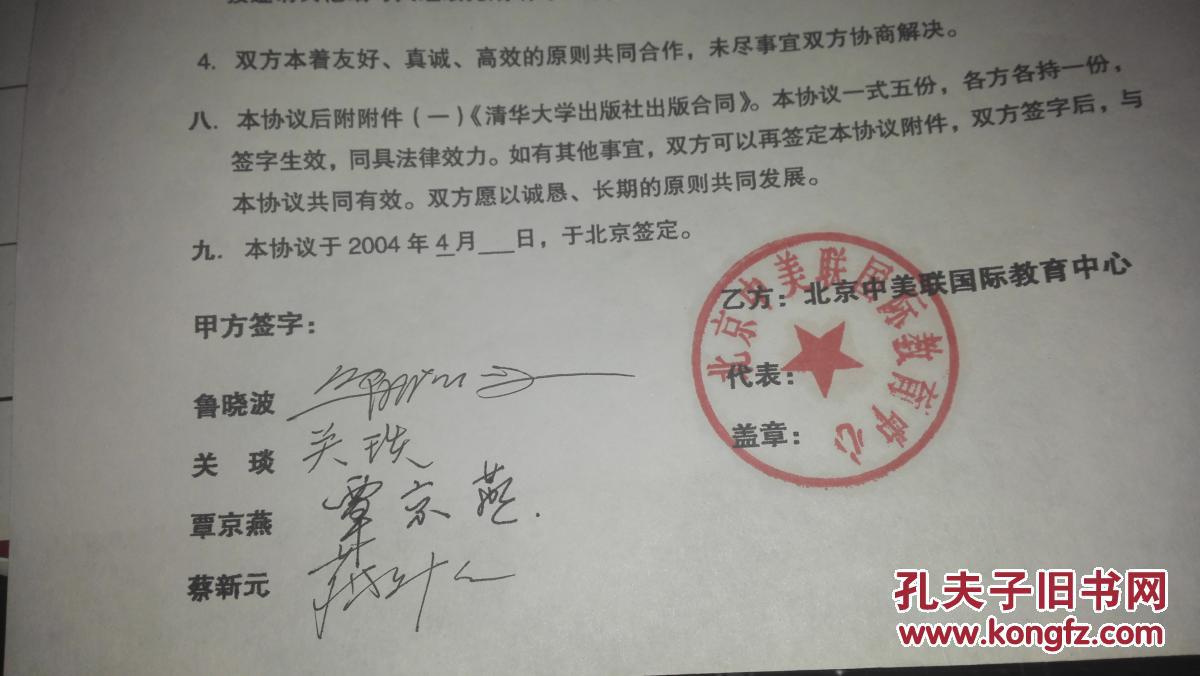 4. 双方本着友好、真诚、高效的原则共同合作，未尽事宜双方协商解决。
八. 本协议后附附件（一）《清华大学出版社出版合同》。本协议一式五份，各方各持一份，
签字生效，同具法律效力。如有其他事宜，双方可以再签定本协议附件，双方签字后，与
本协议共同有效。双方愿以诚恳、长期的原则共同发展。
九. 本协议于 2004 年 4 月___日，于北京签定。
甲方签字：
乙方：北京中美联国际教育中心
代表：
盖章：
北京中美联国际教育中心
鲁晓波
关 琰 关琰
覃京燕 覃京燕.
蔡新元
孔夫子旧书网
www.kongfz.com